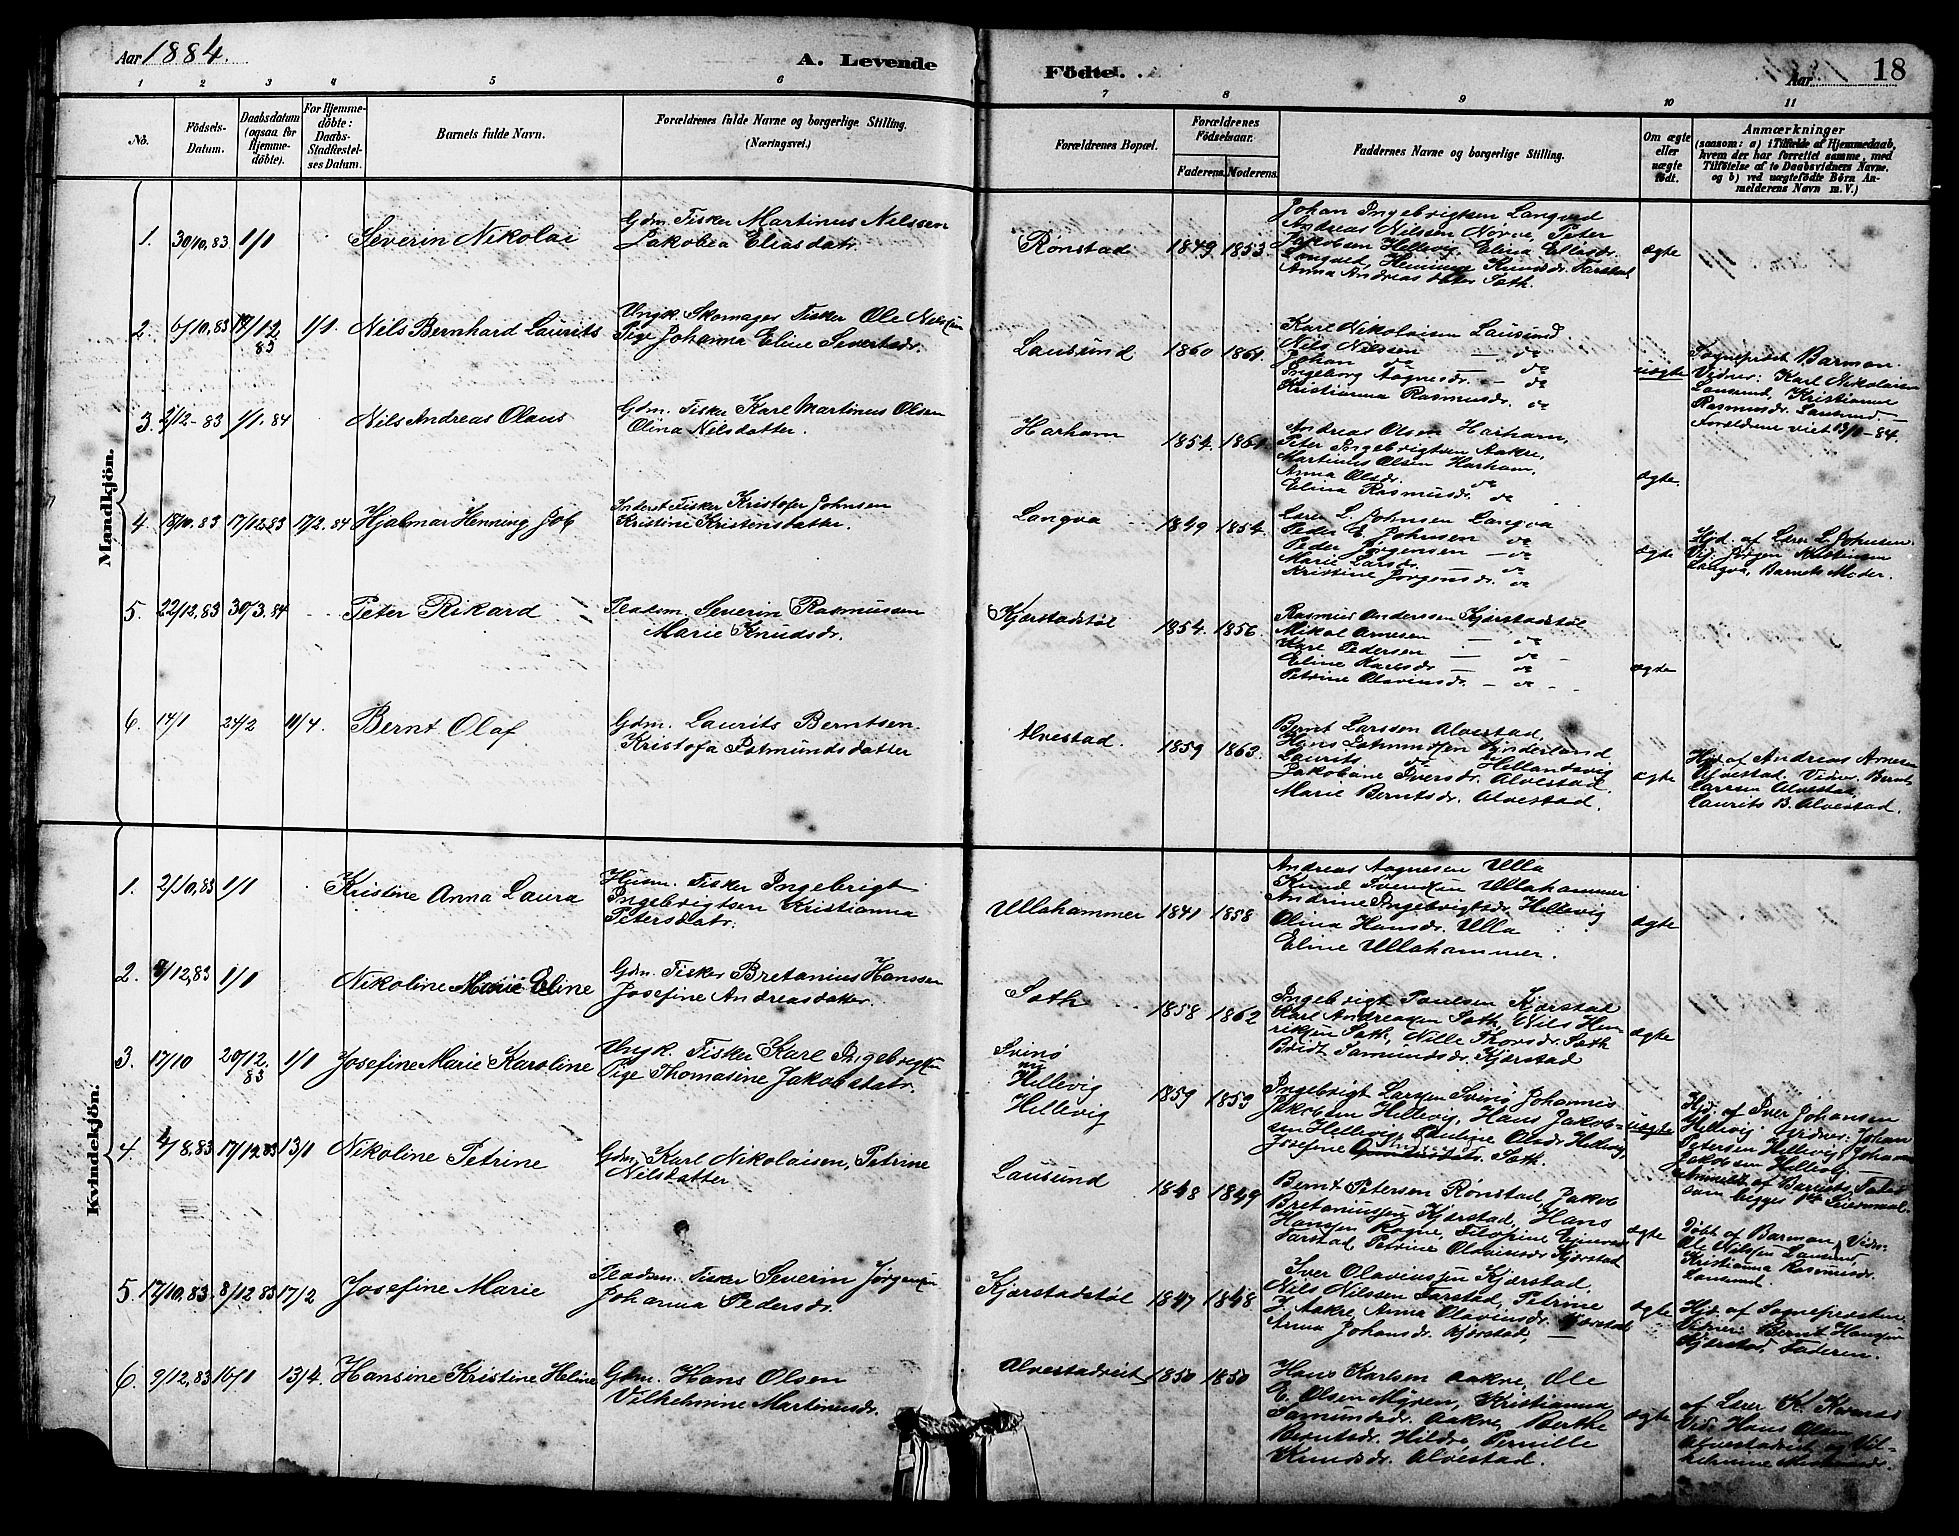 Aar 1884.
A. Levende Födte.
Aar
18
1 2 3 4 5 6 7 8 9 10 11
No.
Födsels-Datum.
Daabsdatum (ogsaa for Hjemmedöbte).
For Hjemmedöbte: Daabs-Stadfæstelses Datum.
Barnets fulde Navn.
Forældrenes fulde Navne og borgerlige Stilling. (Næringsvei.)
Forældrenes Bopæl.
Forældrenes Födselsaar.
Faderens. Moderens.
Faddernes Navne og borgerlige Stilling.
Om ægte eller uægte födt.
Anmærkninger
(saasom: a) i Tilfælde af Hjemmedaab, hvem der har forrettet samme, med Tilföielse af to Daabsvidners Navne. og b) ved uægtefödte Börn Anmelderens Navn m. V.)
Mandkjön.
1. 30/10, 83 1/1 Severin Nikolai
Gdm. Fisker Martinus Nilssen
Jakobea Eliasdatr.
Rönstad 1849 1853.
Johan Ingebrigtsen Langved
Andreas Nilsen Norve, Peter
Jakobsen Hellevig, Elina Eliasdr.
Longvet, Henninge Knudsdr. Farstad
Anna Andreasdater Sath.
ægte
2. 6/10, 83 19/12 83 1/1. Nils Bernhard Laurits
Ungk. Skomager Fisker Ole Nilssen
Pige Johanna Eline Severtsdr.
Lausund 1860 1861.
Karl Nikolaisen Lausund
Nils Nilssen — do
Johan do do
Ingeborg Aagnesdr. — do
Kristianna Rasmusdr. do
uægte
Sogneprest Barman.
Vidner: Karl Nikolaisen
Lausund, Kristianne
Rasmusdr. Lausund —
Forældrene viet 13/1 - 84.
3. 2/12 - 83 1/1. 84 Nils Andreas Olaus
Gdm. Fisker Karl Martinus Olsen
Olina Nilsdatter.
Harham 1854. 1861.
Andreas Olsen Harham,
Peter Ingebrigtsen Aakre,
Martinus Olsen Harham,
Anna Olsdr. do
Elina Rasmusdr. do
ægte.
4. 18/10. 83 17/12 83 17/2. 84 Hjalmar Henning Job
Inderst Fisker Kristofer Johnsen
Kristine Kristensdatter.
Langva 1849 1854.
Lærer L. Johnsen Langva
Peder E. Johnsen do
Peder Jørgensen — do
Marie Larsdr. do
Kristine Jørgensdr. do
ægte
Hjd. af Lærer L. Johnsen.
Vid: Jørgen Kristensen
Langva, Barnets Moder.
5. 22/12, 83 30/3. 84 Peter Rikard
Pladsm. Severin Rasmussen
Marie Knudsdr.
Kjærstadstøl 1854. 1856.
Rasmus Anderssen Kjærstadstøl
Mikal Arnesen — do
Karl Pedersen — do
Eline Karlsdr. — do
Petrine Olavinsdr. — do
ægte
6. 14/1 24/2 11/4. Bernt Olaf
Gdm. Laurits Berntsen
Kristofa Patmundsdatter
Alvestad. 1859 1863.
Bernt Larssen Alvestad,
Laurits do Hellandsvig
Jakobane Iversdr. Alvestad.
Marie Berntsdr. Alvestad.
ægte
Hjd. af Andreas Arnesen
Alvestad. Vidner: Bernt
Larssen Alvestad,
Laurits B. Alvestad.
Kvindekjön.
1. 2/10, 83 1/1 Kristine Anna Laura
Husm. Fisker Ingebrigt
Ingebrigtsen Kristianna
Petersdatr.
Ullahammer 1841 1858
Andreas Aagnesen Ulla
Knud Svendsen Ullahammer
Andrine Ingebrigtsdr. Hellevig
Olina Hansdr. Ulla
Eline Ullahammer.
ægte
2. 8/12, 83 1/1 Nikoline Marie Eline
Gdm. Fisker Bretanius Hanssen
Josefine Andreasdater.
Sath 1858 1862
Ingebrigt Paulsen Kjærstad
Karl Andreasen Sath, Nils Hen
riksen Sath, Nille Thorsdr. Sath
Bridt Samundsdr. Kjærstad
ægte
3. 17/10 20/12. 83 1/1 Josefine Marie Karoline
Ungk. Fisker Karl Ingebrigtsen
Pige Thomasine Jakobsdatr.
Svinø
nu
Hellevig
Hellevig
1859 1859
Ingebrigt Larsen Svinø Johannes
Jakobsen Hellevig, Hans Jakob-
sen Hellevig, Pauline Olsdr. Hellevig,
Josefine Sath.
uægte
Hjd. af Iver Johansen
Hellevig. Vidner: Johan
Petersen Hellevig, Johannes
Jakobsen Hellevig —
Anmeldt af Barnets Fader
som begges 1ste Leiermaal.
4. 4/8, 83 17/12 83 13/1 Nikoline Petrine
Gdm. Karl Nikolaisen, Petrine
Nilsdatter
Lausund 1848 1849
Bernt Petersen Rønstad, Jakob
Bretaniussen Kjærstad, Hans
Hanssen Rogne, Filopine Ejnersdr.
Farstad, Petrine Olavinsdr. Kjærstad
ægte
Døbt af Barman, Vidn:
Ole Nilssen Lausund,
Kristianna Rasmusdr.
Lausund.
5. 17/10, 83. 8/12 83 17/2 Josefine Marie
Pladsm. Fisker Severin Jørgensen
Johanna Pedersdr.
Kjærstadstøl 1847 1848
Iver Olavinssen Kjærstad,
Nils Nilssen Farstad, Petrine
J. Aakre, Anna Olavinsdr. Kjærstad
Anna Johansdr. Kjærstad, —
ægte
Hjd. af Sognepresten
Vidner: Bernt Hanssen
Kjærstad, Faderen.
6. 9/12, 83 16/1 13/4. Hansine Kristine Heline
Gdm. Hans Olsen
Vilhelmine Martinusdr.
Alvestadvik 1850 1850
Hans Karlsen Aakre, Ole
E. Olsen Myren, Kristianna
Samundsdr. Aakre, Berthe
Berntsdr. Hildre, Pernille
Knudsdr. Alvestad.
ægte
af Lærer K.
Vid: Hans Olsen
Alvestadvik og Vil-
helmine Martinusdr.